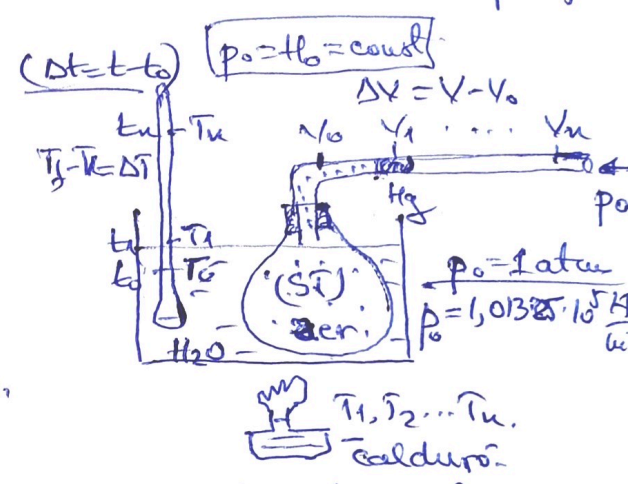 (Δt=t-t₀)
p₀=H₀=const.
ΔV = V-V₀
tₙ Tₙ
V₀ V₁ .... Vₙ
Hg
p₀
t₁ T₁
t₀ T₀
(ST)
aer
H₂O
p₀=1atm
p₀=1,01325·10⁵
T₁, T₂...Tₙ.
căldură